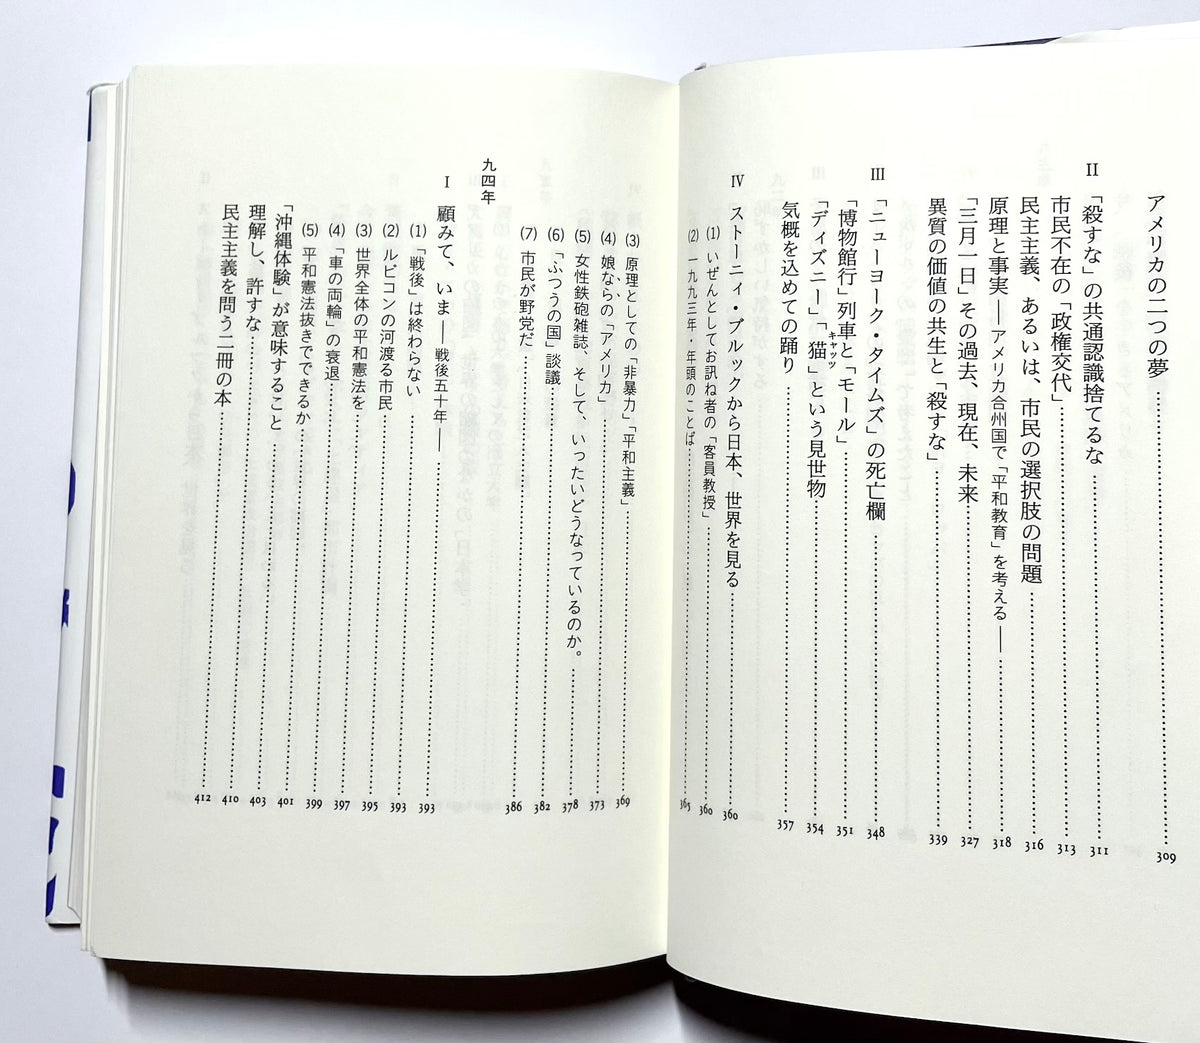 アメリカの二つの夢……309
II
「殺すな」の共通認識捨てるな……311
市民不在の「政権交代」……313
民主主義、あるいは、市民の選択肢の問題……316
原理と事実──アメリカ合州国で「平和教育」を考える──……318
「三月一日」その過去、現在、未来……327
異質の価値の共生と「殺すな」……339
III
「ニューヨーク・タイムズ」の死亡欄……348
「博物館行」列車と「モール」……351
「ディズニー」「猫」という見世物……354
キャッツ
気概を込めての踊り……357
IV
ストーニィ・ブルックから日本、世界を見る……360
(1) いぜんとしてお訊ね者の「客員教授」……360
(2) 一九九三年・年頭のことば……365
(3) 原理としての「非暴力」「平和主義」……369
(4) 娘ならの「アメリカ」……373
(5) 女性鉄砲雑誌、そして、いったいどうなっているのか。……378
(6) 「ふつうの国」談議……382
(7) 市民が野党だ……386
九四年
I
顧みて、いま──戦後五十年──……393
(1) 「戦後」は終わらない……393
(2) ルビコンの河渡る市民……393
(3) 世界全体の平和憲法を……395
(4) 「車の両輪」の衰退……397
(5) 平和憲法抜きでできるか……399
「沖縄体験」が意味すること……401
理解し、許すな……403
民主主義を問う二冊の本……410
……412